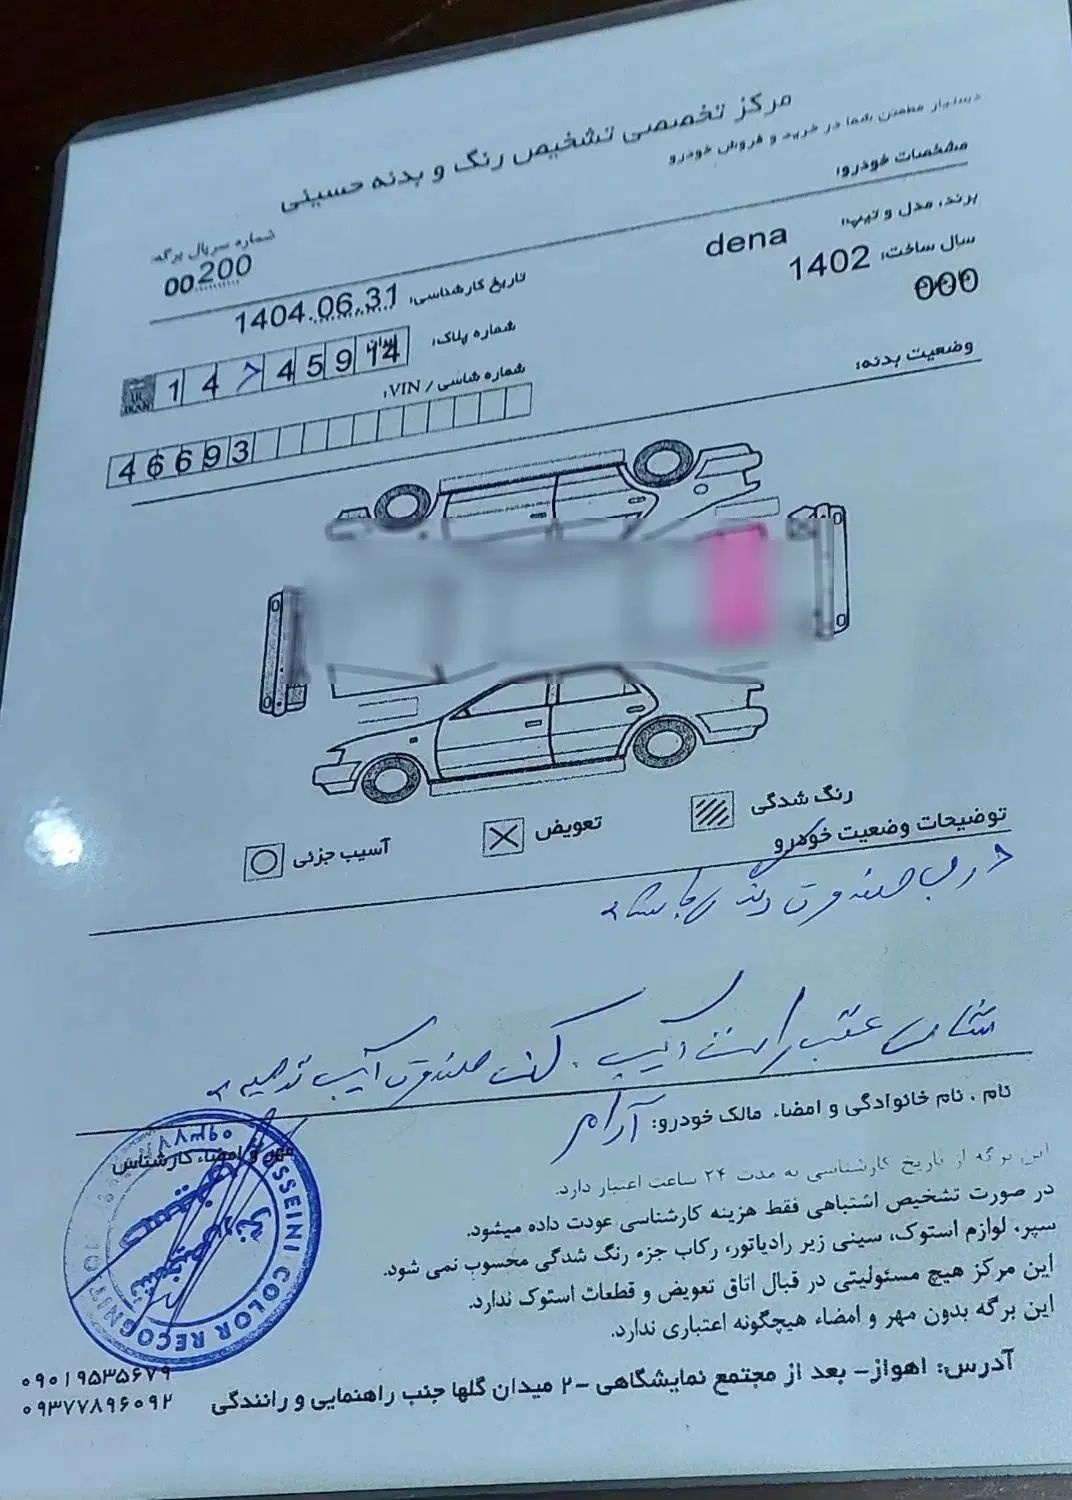 مرکز تخصصی تشخیص رنگ و بدنه حسینی
دستیار مطمئن شما در خرید و فروش خودرو
شماره سریال برگه:
00200
مشخصات خودرو:
برند، مدل و تیپ: dena
سال ساخت: 1402
000
تاریخ کارشناسی: 1404.06.31
شماره پلاک:
14 45914
شماره شاسی / VIN:
46693
وضعیت بدنه:
رنگ شدگی
تعویض
آسیب جزئی
توضیحات وضعیت خودرو
درب صندوق رنگ
شاسی عقب راست آسیب . کف صندوق آسیب
نام ، نام خانوادگی و امضاء مالک خودرو: آرام
مهر و امضاء کارشناس
HOSSEINI COLOR RECOGNITION
این برگه از تاریخ کارشناسی به مدت ۲۴ ساعت اعتبار دارد.
در صورت تشخیص اشتباهی فقط هزینه کارشناسی عودت داده میشود.
سپر، لوازم استوک، سینی زیر رادیاتور، رکاب جزء رنگ شدگی محسوب نمی شود.
این مرکز هیچ مسئولیتی در قبال اتاق تعویض و قطعات استوک ندارد.
این برگه بدون مهر و امضاء هیچگونه اعتباری ندارد.
آدرس: اهواز- بعد از مجتمع نمایشگاهی -۲ میدان گلها جنب راهنمایی و رانندگی
۰۹۰۱۹۵۳۵۶۷۹
۰۹۳۷۷۸۹۶۰۹۲